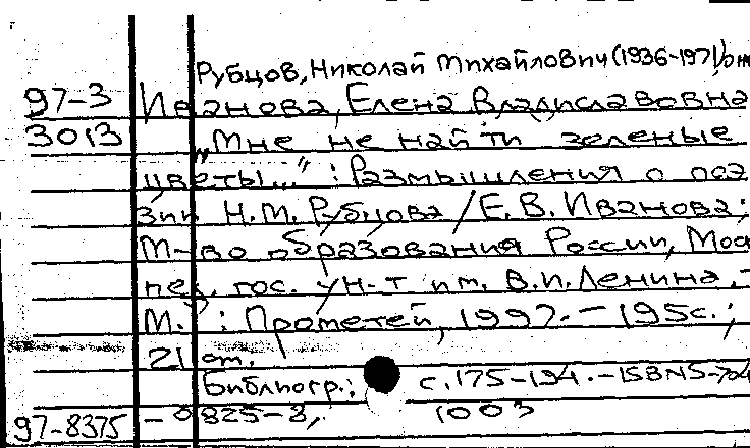 Рубцов, Николай Михайлович (1936-1971) о нем
97-3 Иванова, Елена Владиславовна
3013 „Мне не найти зеленые
цветы..." : Размышления о поэ
зии Н.М. Рубцова / Е.В. Иванова;
М-во образования России, Мос
пед. гос. ун-т им. В.И. Ленина. -
М. : Прометей, 1997. - 195 с.;
21 см.
Библиогр.: с. 175-194. - ISBN 5-704
97-8375 - 0825-3, 1003